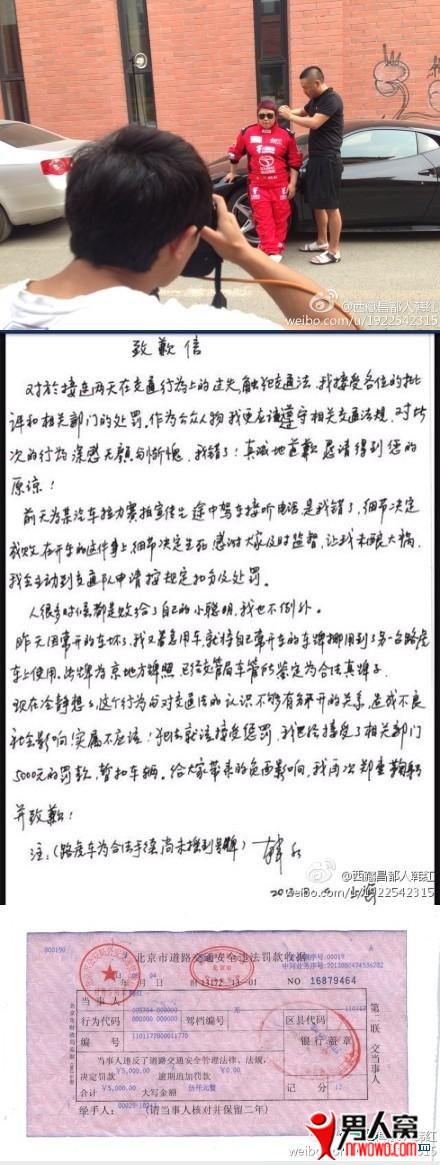 @西藏昌都人韩红
weibo.com/u/1922542315
致歉信
对於接连两天在交通行为上的过失,触犯交通法,我接受各位的批
评和相关部门的处罚。作为公众人物我更应该遵守相关交通法规,对此
次的行为深感无颜与惭愧,我错了!真诚地道歉恳请得到您的
原谅!
前天为某汽车拉力赛拍宣传片途中驾车接听电话是我错了,细节决定
成败,在开车的这件事上,细节决定生死,感谢大家及时监督,让我未酿大祸,
我会主动到交通队申请按规定扣分及处罚。
人很多时候都是败给了自己的小聪明,我也不例外。
昨天因常开的车坏了,我又着急用车,就将自己常开车的车牌挪用到了另一台路虎
车上使用,此牌为京地方牌照,已经交管局车管所鉴定为合法真牌子。
现在冷静想想,这个行为与对交通法的认识不够有分不开的关系,造成不良
社会影响!实属不应该!犯法就该接受惩罚,我已经接受了相关部门
5000元的罚款,暂扣车辆。给大家带来的负面影响,我再次郑重鞠躬
并致歉!
注:(路虎车为合法手续尚未接到号牌) 韩红
@西藏昌都人韩红
weibo.com/u/1922542315
000190
北京市道路交通安全违法罚款收据
年 月 日 NO 16879464
当事人
行为代码 驾档编号 区县代码
编号 1101172800011770 银行盖章
当事人违反了道路交通安全管理法律、法规,
决定罚款 ¥5,000.00 逾期追加罚款 ¥0.00
合计 ¥5,000.00 大写金额 伍仟元整 记分 12
经手人: (请当事人核对并保留二年)
第二联 交当事人
男人窝
nrwowo.com